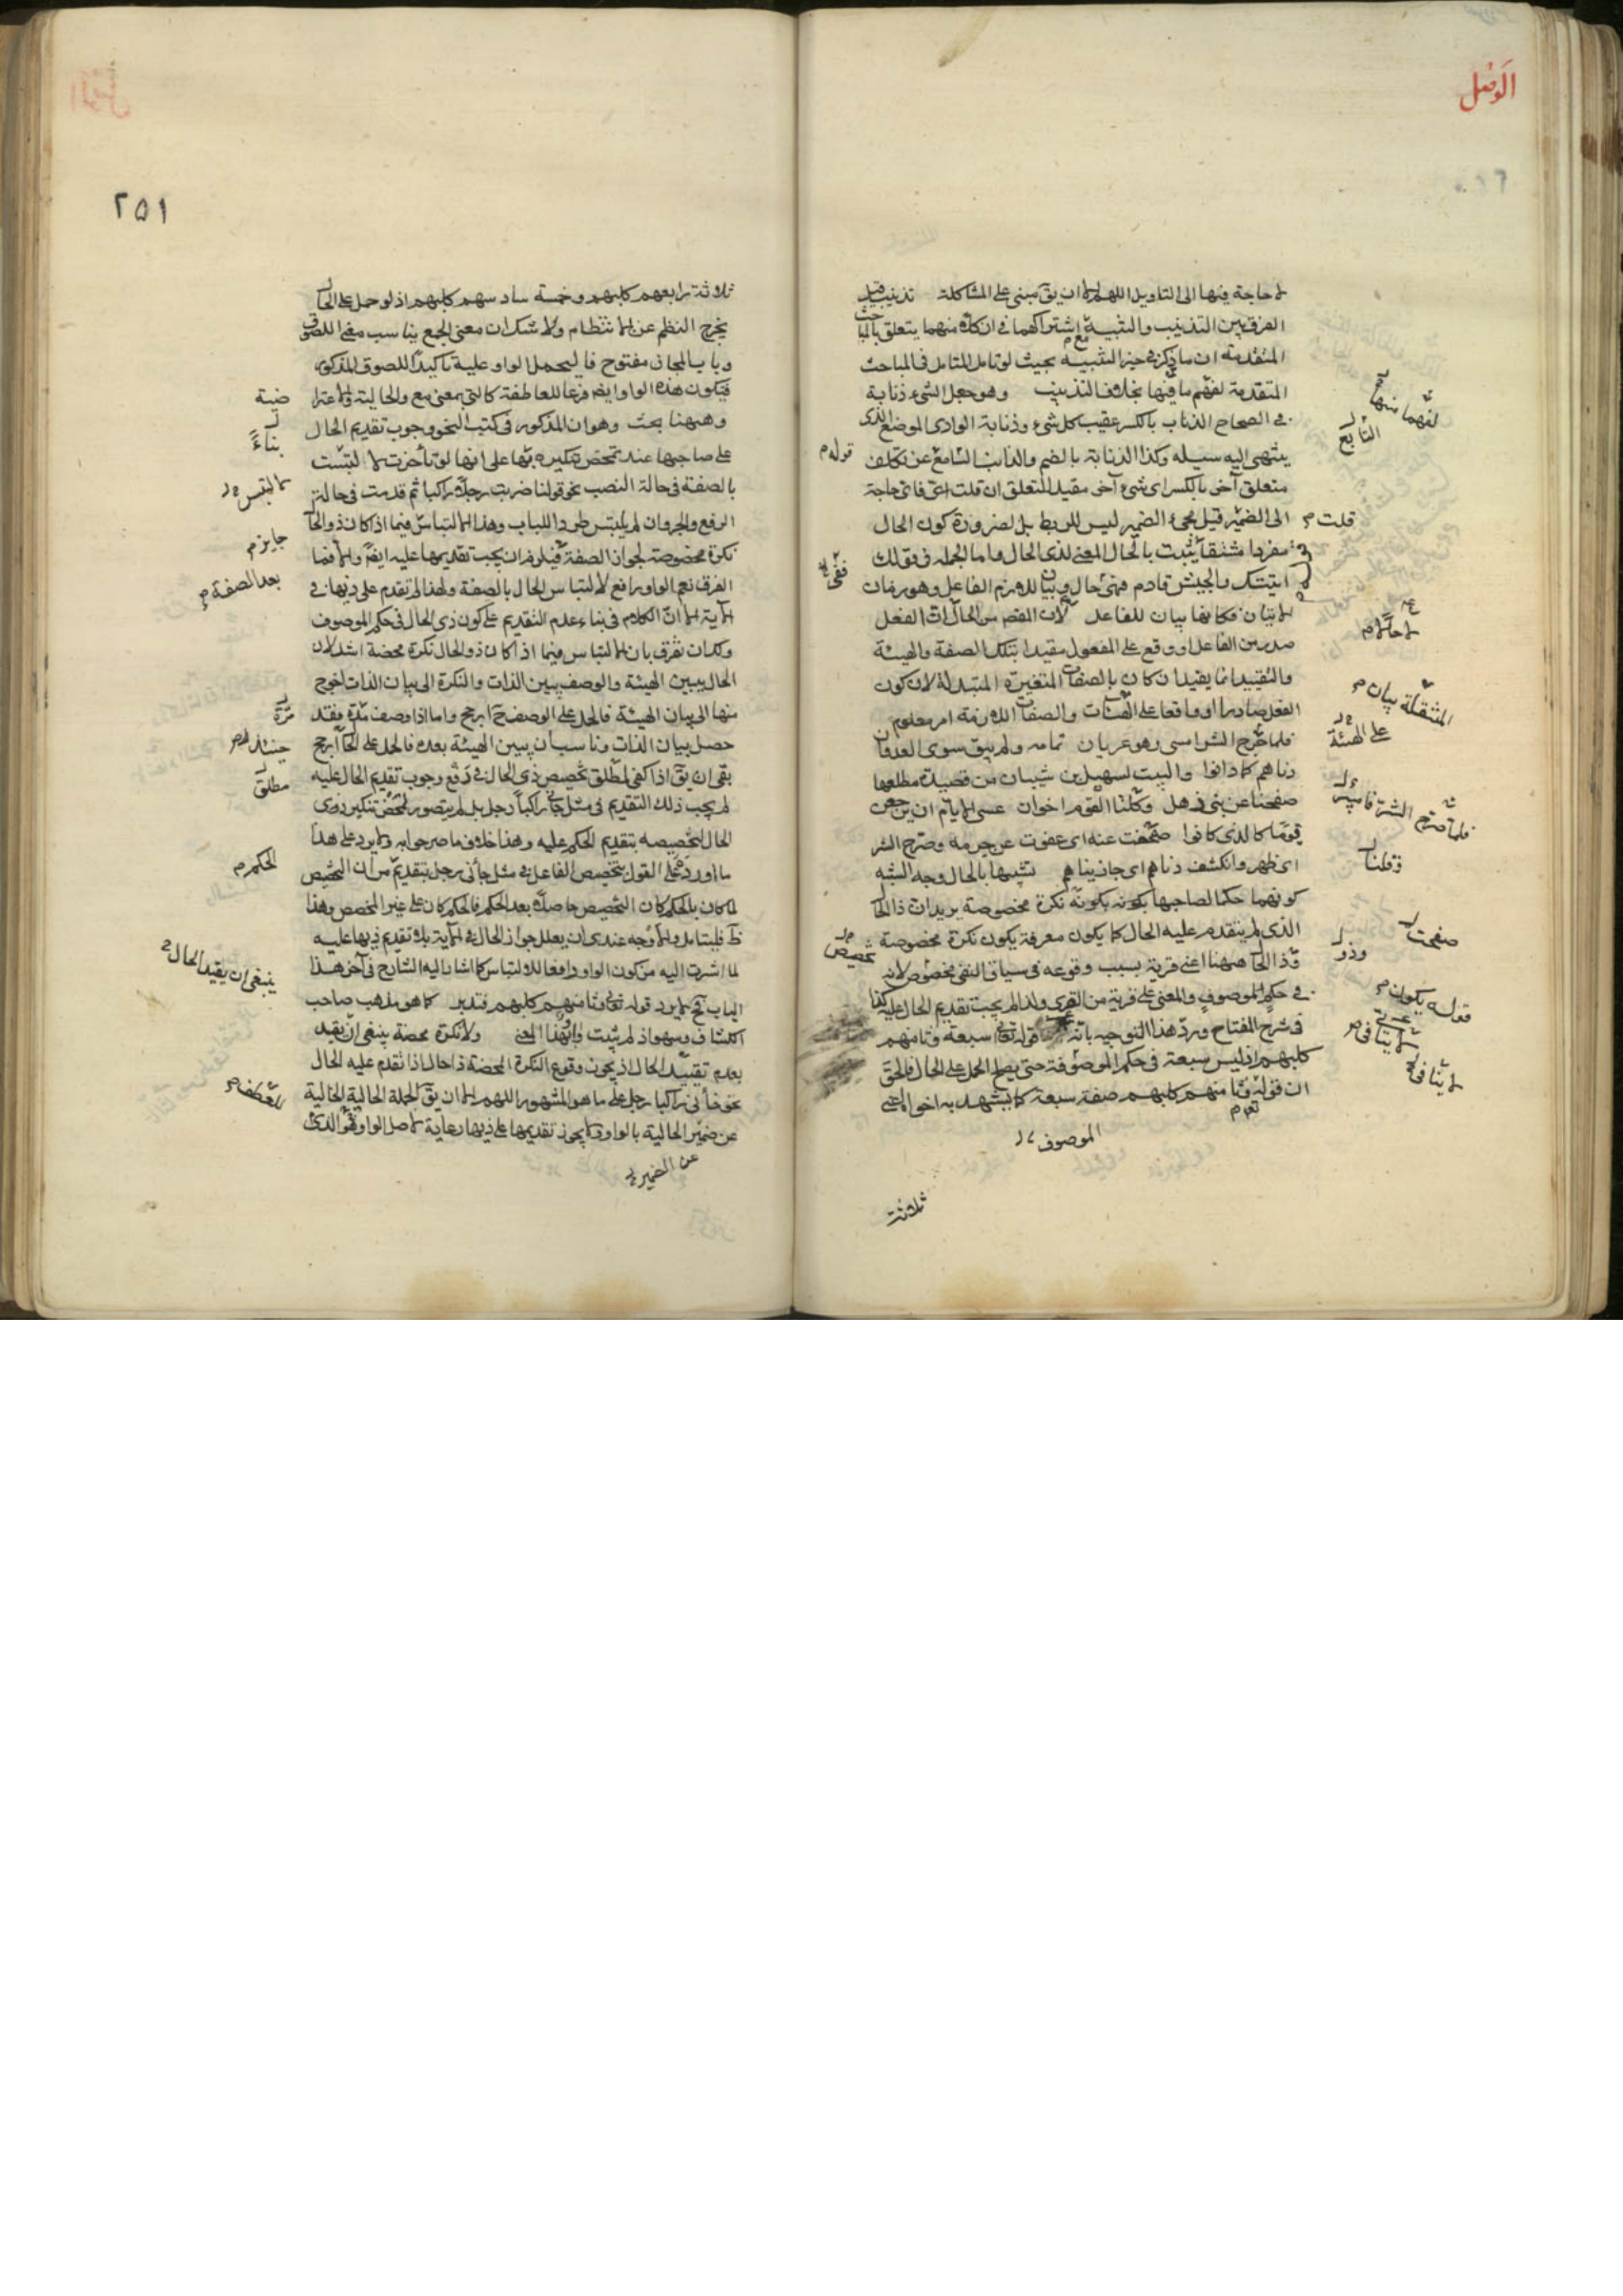 الوصل
لا حاجة فيها الى التاويل اللهم الا ان يق مبنى على المشاكلة تذنيب قيل
الفرق بين التذنيب والتنبيه مع اشتراكهما فى ان كلا منهما يتعلق بالمباحث
المتقدمة ان ما ذكر فى حيز التنبيه بحيث لو تامل المتامل فى المباحث
المتقدمة لفهم ما فيها بخلاف التذنيب وهو جعل الشىء ذنابة
فى الصحاح الذناب بالكسر عقيب كل شىء وذنابة الوادى الموضع الذى
ينتهى اليه سيله وكذا الذنابة بالضم والذانب التابع عن تكلف
متعلق آخر بالكسر اى شىء آخر مقيد للتعلق ان قلت اى حاجة
الى الضمير قيل مجىء الضمير ليس للربط بل لضرورة كون الحال
مفردا مشتقا يثبت بالحال المعنى لذى الحال واما الجملة فى قولك
اتيتك والجيش قادم فهى حال وبيان للازم الفاعل وهو زمان
الاتيان فكانها بيان للفاعل لان المقصم من الحال ان الفعل
صدر من الفاعل او وقع على المفعول مقيدا بتلك الصفة والهيئة
والتقييد انما يفيد ان كان بالصفات المتغيرة المتبدلة لان كون
الفعل صادرا او واقعا على الصفات اللازمة امر معلوم
فلما صرح الشر امسى وهو عريان تمامه ولم يبق سوى العدوان
دناهم كما دانوا والبيت لسهيل بن شيبان من قصيدة مطلعها
صفحنا عن بنى ذهل وقلنا القوم اخوان عسى الايام ان يرجعن
قوما كالذى كانوا صفحت عنه اى عفوت عن جرمه وصرح الشر
اى ظهر وانكشف دناهم اى جازيناهم تشبيها بالحال وجه الشبه
كونهما حكما لصاحبها بكونه نكرة مخصوصة يريد ان ذا الحال
الذى لم يتقدم عليه الحال كما يكون معرفة يكون نكرة مخصوصة
وذا الحال ههنا اعنى قرية بسبب وقوعه فى سياق النفى مخصوص لانه
فى حكم الموصوف والمعنى على قرية من القرى ولذا لم يجب تقديم الحال عليه كذا
فى شرح المفتاح ورد هذا التوجيه بانه قوله تعالى سبعة وثامنهم
كلبهم اذ ليس سبعة فى حكم الموصوفة حتى يصح الحمل على الحال فالحق
ان قوله تعم وثامنهم كلبهم صفة سبعة كما يشهد به اخواه اعنى
ثلاثة
لفهمها منها
التابع
قوله م
قلت م
ففى
المنتقلة بيان م
على الهيئة
فلما صرح الشر فامسى
وقلنا
صفحت
وذو
تخصيص
قوله يكون م
لا ينافى
الموصوف
٢٥١
ثلاثة رابعهم كلبهم وخمسة سادسهم كلبهم اذ لو حمل على الحال
يخرج النظم عن الانتظام ولا شك ان معنى الجمع يناسب معنى اللصوق
وباب المجاز مفتوح فاليحمل الواو عليه تاكيدا للصوق المذكور
فيكون هذه الواو ايضا فرعا للعاطفة كالتى بمعنى مع والحالية والاعترا
وههنا بحث وهو ان المذكور فى كتب النحو وجوب تقديم الحال
على صاحبها عند تمحض تنكيره بناء على انها لو تأخرت لالتبست
بالصفة فى حالة النصب نحو قولنا ضربت رجلا راكبا ثم قدمت فى حالة
الرفع والجر وان لم يلتبس طردا للباب وهذا الالتباس فيما اذا كان ذو الحال
نكرة مخصوصة لجواز الصفة فيلزم ان يجب تقديمها عليه ايضا والا فما
الفرق نعم الواو رافع لالتباس الحال بالصفة ولهذا لم تقدم على ذيها فى
الآية الا ان الكلام فى بناء عدم التقديم على كون ذى الحال فى حكم الموصوف
وكان تفرق بان الالتباس فيما اذا كان ذو الحال نكرة محضة اشد لان
الحال يبين الهيئة والوصف يبين الذات والنكرة الى بيان الذات احوج
منها الى بيان الهيئة فالحمل على الوصف ح ارجح واما اذا وصف مرة فقد
حصل بيان الذات وناسب ان يبين الهيئة بعده فالحمل على الحال ارجح
بقى ان يق اذا كفى لمطلق تخصيص ذى الحال فى دفع وجوب تقديم الحال عليه
لم يجب ذلك التقديم فى مثل جاءنى راكبا رجل بل لم يتصور لتمحض تنكير ذوى
الحال لتخصيصه بتقديم الحكم عليه وهذا خلاف ما صرحوا به ولا يرد على هذا
ما اورد على القول بتخصيص الفاعل فى مثل جاءنى رجل بتقديم من ان التخصيص
لما كان بالحكم كان التخصيص حاصلا بعد الحكم فالحكم كان على غير المخصص وهذا
ظ فليتامل والاوجه عندى ان يعلل جواز الحال فى الآية بلا تقديم ذيها عليه
لما اشرت اليه من كون الواو رافعا للالتباس كما اشار اليه الشارح فى آخر هذا
الباب فح لا يرد قوله تعالى وثامنهم كلبهم فتدبر كما هو مذهب صاحب
الكشاف وسهو اذ لم يثبت وانه بهذا المعنى ولا نكرة محضة ينبغى ان يقيد
بعدم تقييد الحال اذ يجوز وقوع النكرة المحضة ذا حال اذا تقدم عليه الحال
نحو جاءنى راكبا رجل على ما هو المشهور اللهم الا ان يق الجملة الحالية الخالية
عن ضمير الحالية بالواو لا يجوز تقديمها على ذيها رعاية لاصل الواو وهو الذى
بناءً
جايز م
بعد الصفة م
مرّة
حينئذ
مطلق
الحكم م
ينبغى ان يقيد الحال
للعطف
عن الضمير